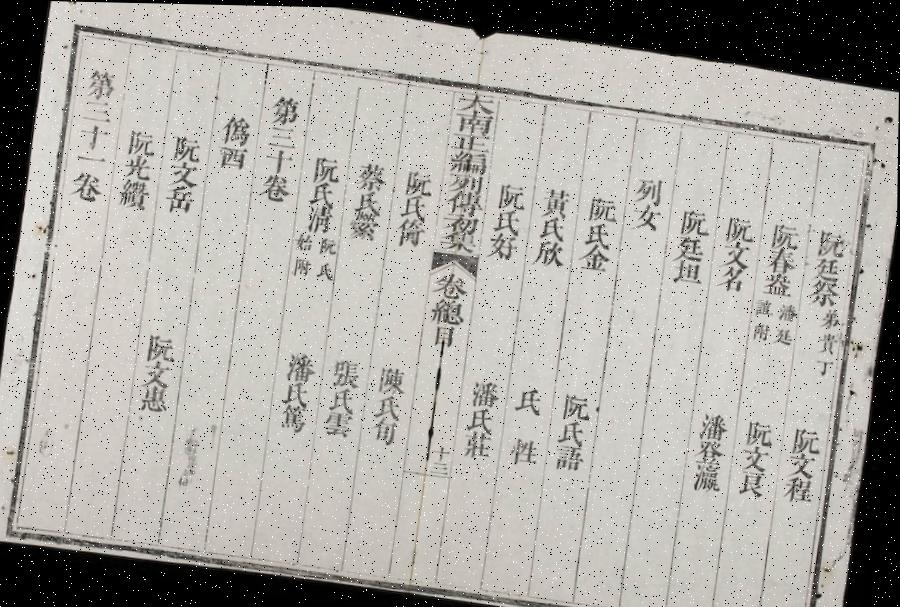 阮廷祭 弟貴丁 阮文程
阮春益 潘廷誼附 阮文良
阮文名 潘容瀛
阮廷垣
列女
阮氏金 阮氏語
黃氏欣 氏性
阮氏好 潘氏莊
大南正編列傳初集 卷總目 十三
阮氏倚 陳氏旬
蔡氏縈 張氏雲
阮氏清 阮氏始附 潘氏篤
第三十卷
僞西
阮文岳
阮光纘 阮文惠
第三十一卷